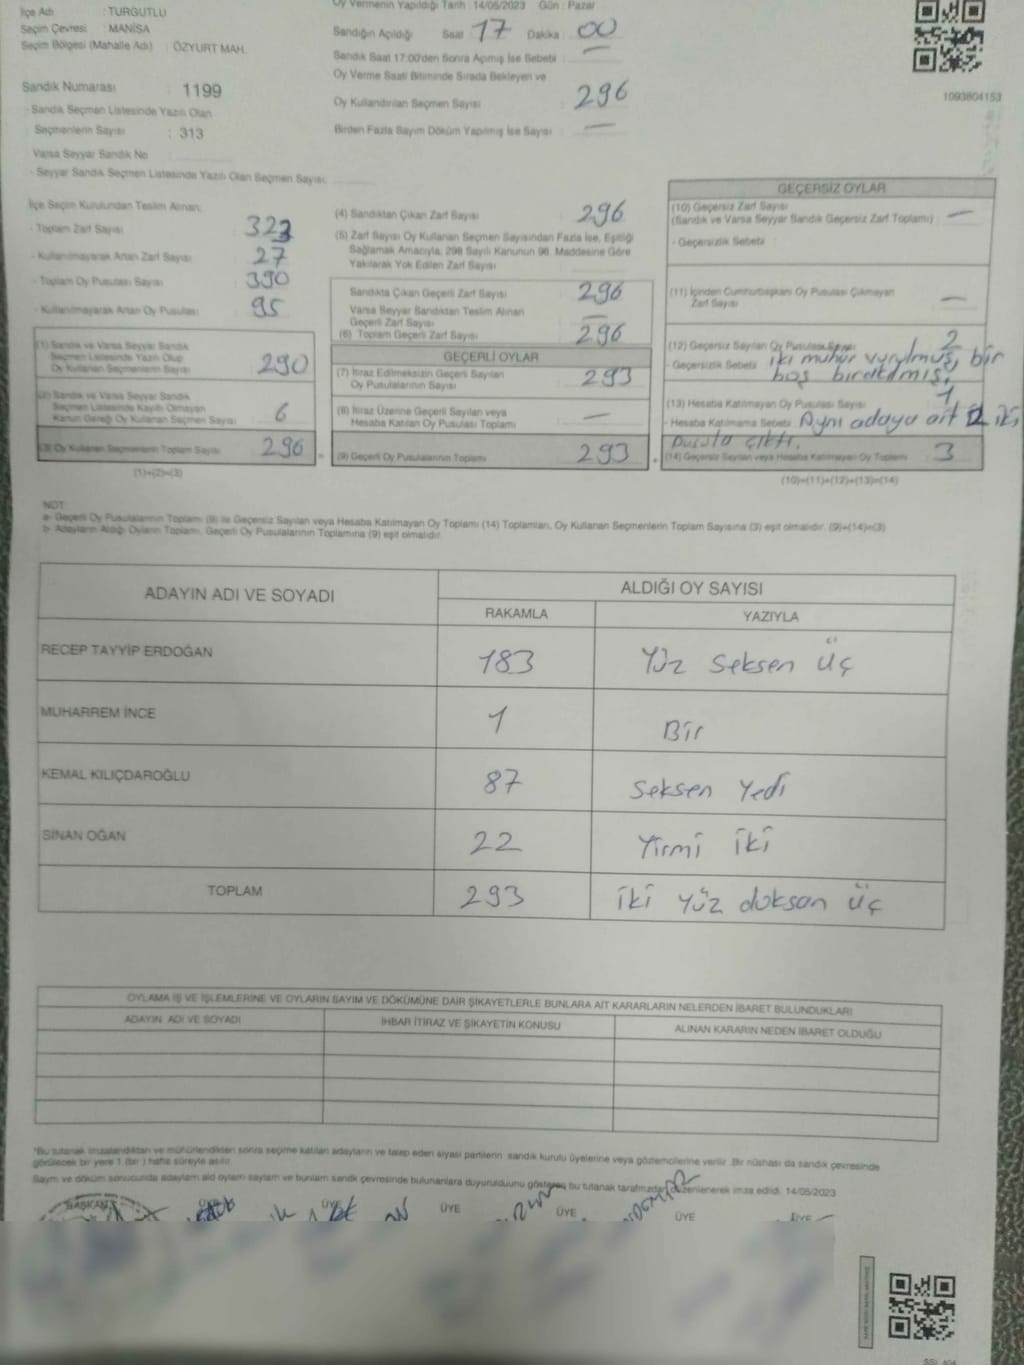 İlçe Adı : TURGUTLU
Seçim Çevresi : MANİSA
Seçim Bölgesi (Mahalle Adı) : ÖZYURT MAH.
Sandık Numarası : 1199
- Sandık Seçmen Listesinde Yazılı Olan
Seçmenlerin Sayısı : 313
Varsa Seyyar Sandık No :
- Seyyar Sandık Seçmen Listesinde Yazılı Olan Seçmen Sayısı:
Oy Vermenin Yapıldığı Tarih : 14/05/2023 Gün : Pazar
Sandığın Açıldığı Saat : 17 Dakika : 00
Sandık Saat 17:00'den Sonra Açılmış İse Sebebi : —
Oy Verme Saati Bitiminde Sırada Bekleyen ve
Oy Kullandırılan Seçmen Sayısı : 296
Birden Fazla Sayım Döküm Yapılmış İse Sayısı : —
1093804153
İlçe Seçim Kurulundan Teslim Alınan:
- Toplam Zarf Sayısı : 323
- Kullanılmayarak Artan Zarf Sayısı : 27
- Toplam Oy Pusulası Sayısı : 390
- Kullanılmayarak Artan Oy Pusulası : 95
(1) Sandık ve Varsa Seyyar Sandık
Seçmen Listesinde Yazılı Olup
Oy Kullanan Seçmenlerin Sayısı : 290
(2) Sandık ve Varsa Seyyar Sandık
Seçmen Listesinde Kayıtlı Olmayan
Kanun Gereği Oy Kullanan Seçmen Sayısı : 6
(3) Oy Kullanan Seçmenlerin Toplam Sayısı : 296
(1)+(2)=(3)
(4) Sandıktan Çıkan Zarf Sayısı : 296
(5) Zarf Sayısı Oy Kullanan Seçmen Sayısından Fazla İse, Eşitliği
Sağlamak Amacıyla; 298 Sayılı Kanunun 98. Maddesine Göre
Yakılarak Yok Edilen Zarf Sayısı :
Sandıkta Çıkan Geçerli Zarf Sayısı : 296
Varsa Seyyar Sandıktan Teslim Alınan
Geçerli Zarf Sayısı : —
(6) Toplam Geçerli Zarf Sayısı : 296
GEÇERLİ OYLAR
(7) İtiraz Edilmeksizin Geçerli Sayılan
Oy Pusulalarının Sayısı : 293
(8) İtiraz Üzerine Geçerli Sayılan veya
Hesaba Katılan Oy Pusulası Toplamı : —
(9) Geçerli Oy Pusulalarının Toplamı : 293
GEÇERSİZ OYLAR
(10) Geçersiz Zarf Sayısı
(Sandık ve Varsa Seyyar Sandık Geçersiz Zarf Toplamı) : —
- Geçersizlik Sebebi :
(11) İçinden Cumhurbaşkanı Oy Pusulası Çıkmayan
Zarf Sayısı : —
(12) Geçersiz Sayılan Oy Pusulası Sayısı : 2
- Geçersizlik Sebebi : iki mühür vurulmuş, bir
boş bırakılmış,
(13) Hesaba Katılmayan Oy Pusulası Sayısı : 1
- Hesaba Katılmama Sebebi : Aynı adaya ait iki
pusula çıktı.
(14) Geçersiz Sayılan veya Hesaba Katılmayan Oy Toplamı : 3
(10)+(11)+(12)+(13)=(14)
NOT:
a- Geçerli Oy Pusulalarının Toplamı (9) ile Geçersiz Sayılan veya Hesaba Katılmayan Oy Toplamı (14) Toplamları, Oy Kullanan Seçmenlerin Toplam Sayısına (3) eşit olmalıdır. (9)+(14)=(3)
b- Adayların Aldığı Oyların Toplamı, Geçerli Oy Pusulalarının Toplamına (9) eşit olmalıdır.
ADAYIN ADI VE SOYADI ALDIĞI OY SAYISI
RAKAMLA YAZIYLA
RECEP TAYYİP ERDOĞAN 183 Yüz Seksen üç
MUHARREM İNCE 1 Bir
KEMAL KILIÇDAROĞLU 87 Seksen Yedi
SİNAN OĞAN 22 Yirmi iki
TOPLAM 293 iki yüz doksan üç
OYLAMA İŞ VE İŞLEMLERİNE VE OYLARIN SAYIM VE DÖKÜMÜNE DAİR ŞİKAYETLERLE BUNLARA AİT KARARLARIN NELERDEN İBARET BULUNDUKLARI
ADAYIN ADI VE SOYADI İHBAR İTİRAZ VE ŞİKAYETİN KONUSU ALINAN KARARIN NEDEN İBARET OLDUĞU
*Bu tutanak imzalandıktan ve mühürlendikten sonra seçime katılan adayların ve talep eden siyasi partilerin sandık kurulu üyelerine veya gözlemcilerine verilir. Bir nüshası da sandık çevresinde
görülecek bir yere 1 (bir ) hafta süreyle asılır.
Sayım ve döküm sonucunda adayların aldığı oyların sayısını ve bunların sandık çevresinde bulunanlara duyurulduunu gösteren bu tutanak tarafımızdan düzenlenerek imza edildi. 14/05/2023
BAŞKAN ÜYE ÜYE ÜYE ÜYE ÜYE ÜYE